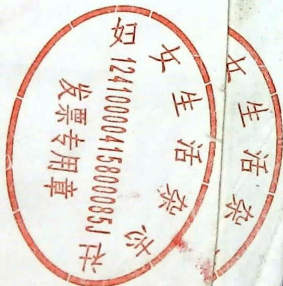 妇女生活杂志社
12410000415800085J
发票专用章
女生活杂